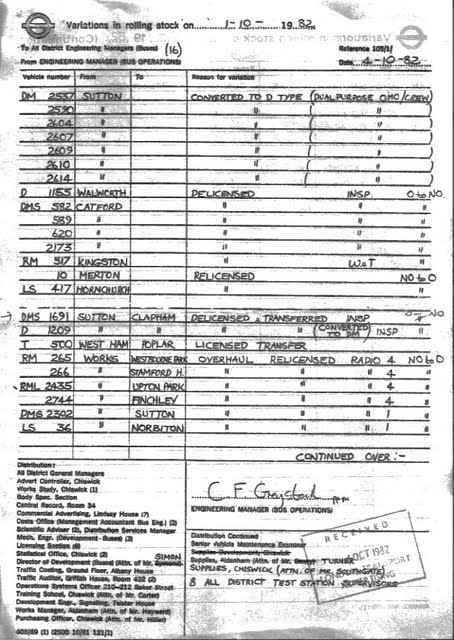 Variations in rolling stock on 1-10- 1982
To All District Engineering Managers (Buses) (16) Reference 105/1/
From ENGINEERING MANAGER (BUS OPERATIONS) Date 4-10-82
Vehicle number From To Reason for variation
DM 2557 SUTTON CONVERTED TO D TYPE (DUAL PURPOSE OMO/CREW)
2590 " " ( " )
2604 " " ( " )
2607 " " ( " )
2609 " " ( " )
2610 " " ( " )
2614 " " ( " )
D 1155 WALWORTH DELICENSED INSP. O to NO.
DMS 582 CATFORD " " "
589 " " " "
620 " " " "
2173 " " " "
RM 517 KINGSTON " W of T "
10 MERTON RELICENSED NO to O
LS 417 HORNCHURCH " "
DMS 1691 SUTTON CLAPHAM DELICENSED & TRANSFERRED INSP O to NO
D 1209 " " " " (CONVERTED TO DM) INSP "
T 500 WEST HAM POPLAR LICENSED TRANSFER
RM 265 WORKS WESTBOURNE PARK OVERHAUL RELICENSED RADIO 4 NO to O
266 " STAMFORD H. " " " 4 "
RML 2435 " UPTON PARK " " " 4 "
2744 " FINCHLEY " " " 4 "
DMS 2302 " SUTTON " " " 1 "
LS 36 " NORBITON " " " 1 "
CONTINUED OVER :-
Distribution:
All District General Managers
Advert Controller, Chiswick
Works Study, Chiswick (1)
Body Spec. Section
Central Record, Room 34
Commercial Advertising, Lindsay House (7)
Costs Office (Management Accountant Bus Eng.) (2)
Scientific Adviser (2), Distribution Services Manager
Mech. Engr. (Development - Buses) (3)
Licensing Section (6)
Statistical Office, Chiswick (2)
Director of Development (Buses) (Attn. of Mr. SIMON)
Traffic Costing, Ground Floor, Albany House
Traffic Auditor, Griffith House, Room 432 (2)
Operations Systems Officer 210-212 Baker Street
Training School, Chiswick (Attn. of Mr. Carter)
Development Engr., Signaling, Telstar House
Works Manager, Aldenham (Attn. of Mr. Hayward)
Purchasing Officer, Chiswick (Attn. of Mr. Hitler)
403/69 (1) (2500 10/81 121/1)
C F Graystord ppm
ENGINEERING MANAGER (BUS OPERATIONS)
Distribution Continued
Senior Vehicle Maintenance Examiner
Supplies Development, Chiswick
Supplies, Aldenham (Attn. of Mr. TURNER
SUPPLIES, CHISWICK (ATTN. OF MR. SOUTHGATE)
8 ALL DISTRICT TEST STATION SUPERVISORS
RECEIVED
OCT 1982